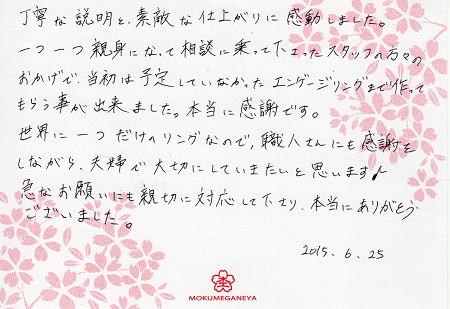 丁寧な説明と、素敵な仕上がりに感動しました。
一つ一つ親身になって相談に乗って下さったスタッフの方々の
おかげで、当初は予定していなかったエンゲージリングまで作って
もらう事が出来ました。本当に感謝です。
世界に一つだけのリングなので、職人さんにも感謝を
しながら、夫婦で大切にしていきたいと思います♪
急なお願いにも親切に対応して下さり、本当にありがとう
ございました。
2015. 6. 25
MOKUMEGANEYA